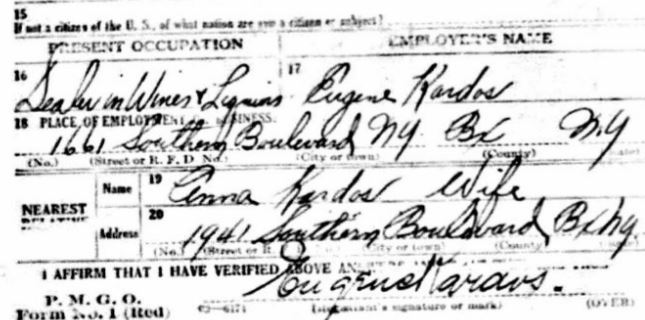 15
If not a citizen of the U. S., of what nation are you a citizen or subject?
PRESENT OCCUPATION EMPLOYER'S NAME
16 Dealer in Wines & Liquors 17 Eugene Kardos
18 PLACE OF EMPLOYMENT OR BUSINESS:
1661 Southern Boulevard NY. Bx N.Y
(No.) (Street or R. F. D. No.) (City or town) (County)
NEAREST RELATIVE
Name 19 Anna Kardos Wife
Address 20 1941 Southern Boulevard Bx Ny.
(No.) (Street or R. (City or town) (County)
I AFFIRM THAT I HAVE VERIFIED ABOVE
Eugene Kardos.
P. M. G. O.
Form No. 1 (Red) 03—6171 (Registrant's signature or mark) (OVER)